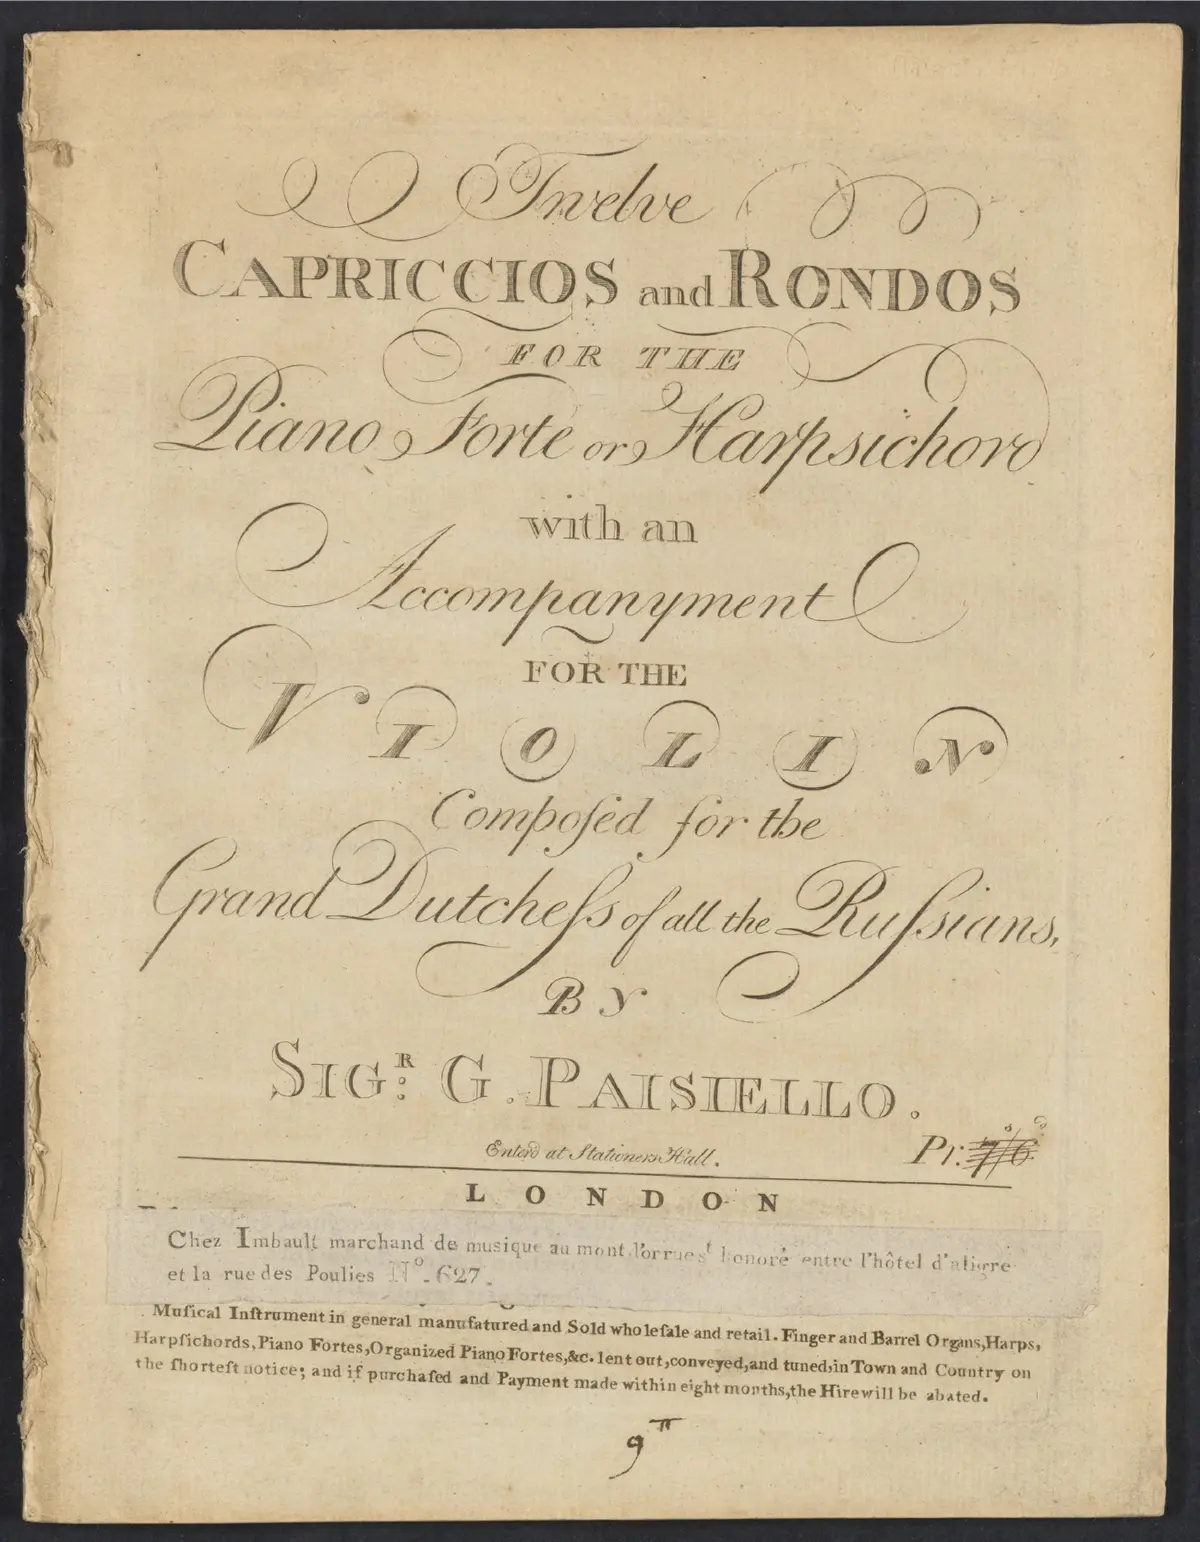 Twelve
CAPRICCIOS and RONDOS
FOR THE
Piano Forte or Harpsichord
with an
Accompanyment
FOR THE
VIOLIN
Compoſed for the
Grand Dutcheſs of all the Ruſsians,
BY
SIGR: G. PAISIELLO.
Enterd at Stationers Hall. Pr. 7/6
LONDON
Chez Imbault marchand de musique au mont d'or rue st honoré entre l'hôtel d'aligre
et la rue des Poulies No. 627.
Muſical Inſtrument in general manufatured and Sold wholeſale and retail. Finger and Barrel Organs, Harps,
Harpſichords, Piano Fortes, Organized Piano Fortes, &c. lent out, conveyed, and tuned, in Town and Country on
the ſhorteſt notice; and if purchaſed and Payment made within eight months, the Hire will be abated.
9